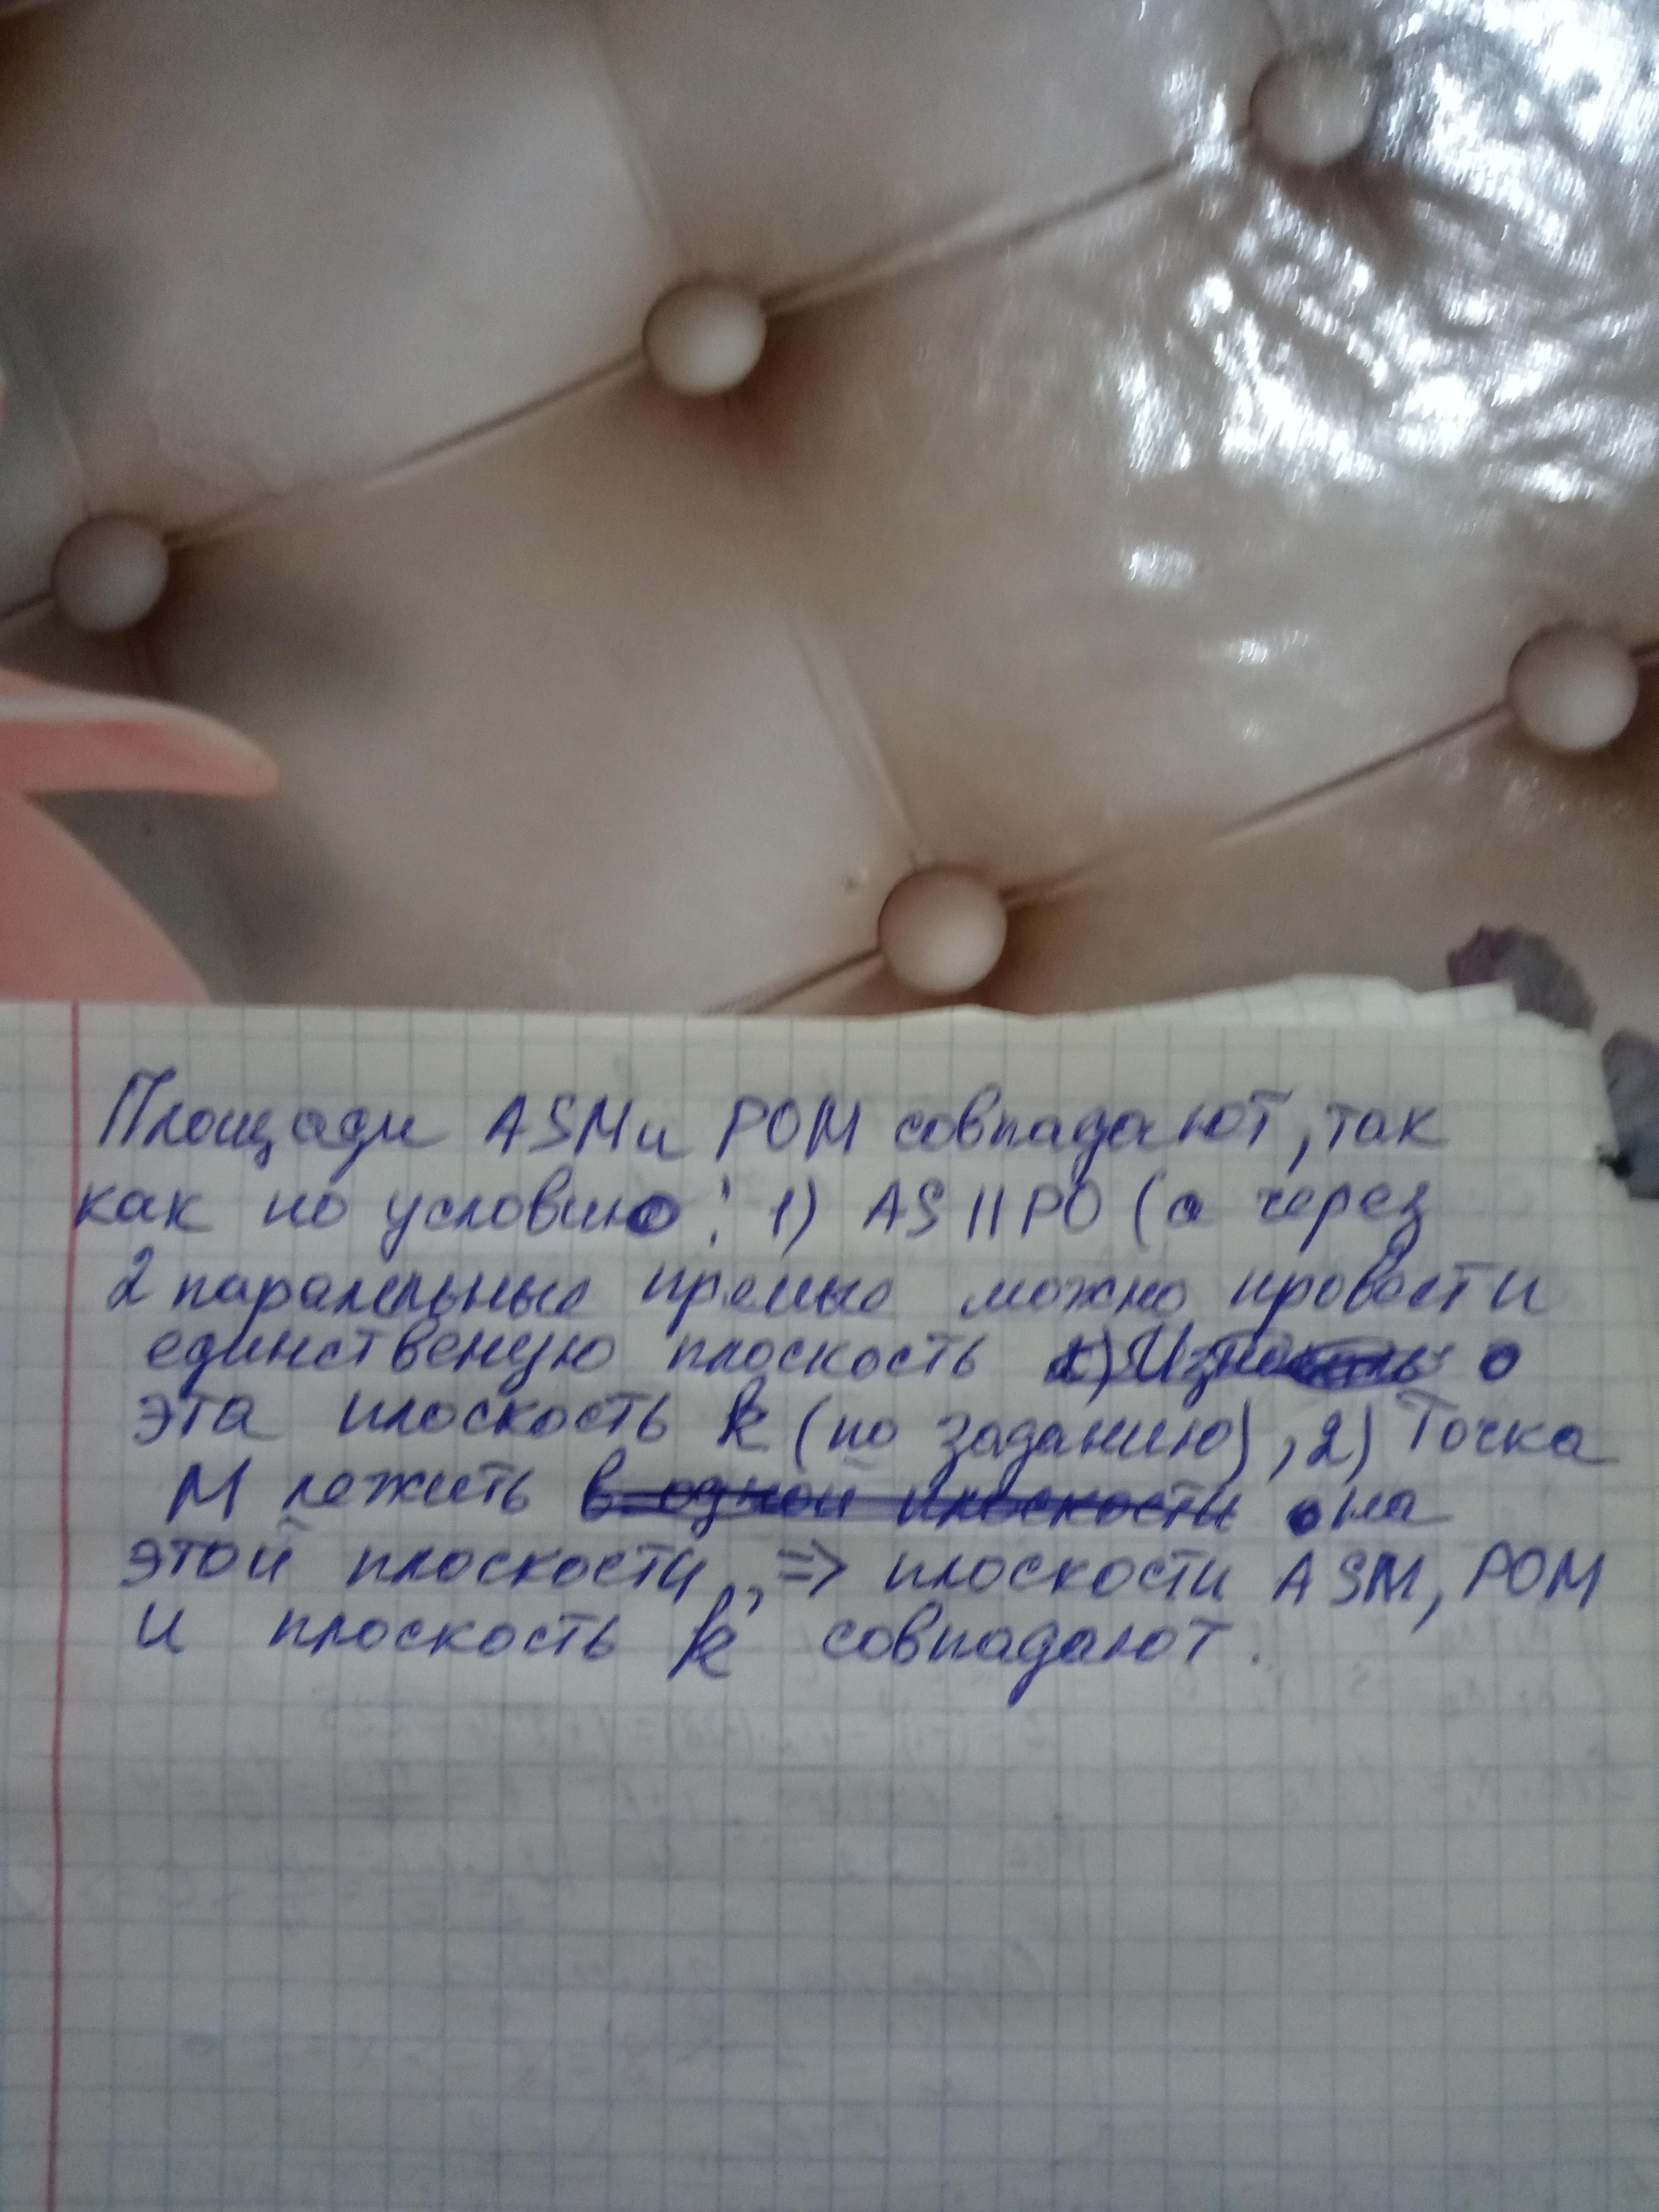 Площади ASM и POM совпадают, так
как по условию: 1) AS || PO (а через
2 паралельные прямые можно провести
единственую плоскость
эта плоскость k (по заданию), 2) Точка
М лежить на
этой плоскости, => плоскости ASM, POM
и плоскость k совпадают.